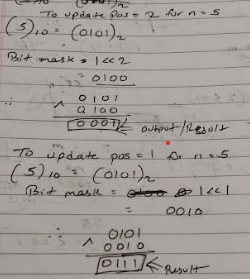 To update pos = 2 for n = 5
(5)10 = (0101)2
Bit mask = 1<<2
= 0100
0101
^ 0100
0001 ← output/Result
To update pos = 1 for n = 5
(5)10 = (0101)2
Bit mask = 1<<1
= 0010
0101
^ 0010
0111 ← Result